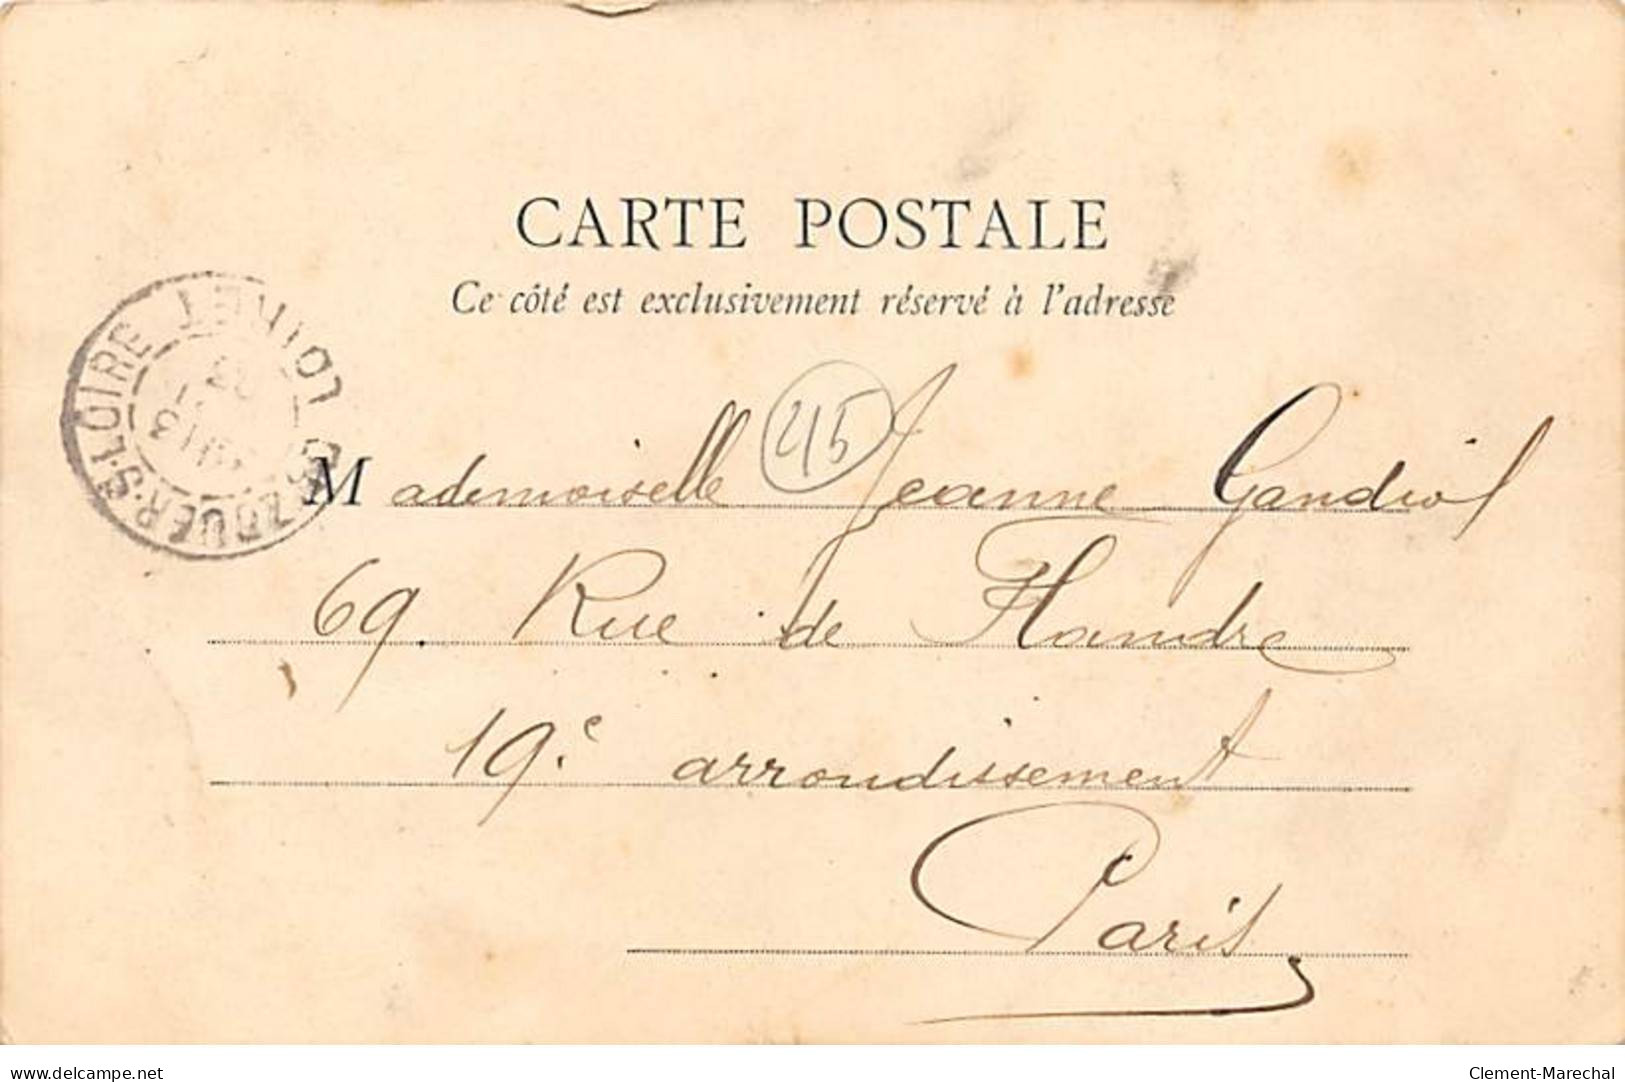 CARTE POSTALE
Ce côté est exclusivement réservé à l'adresse
LOIRET
OUZOUER-S-LOIRE
45
Mademoiselle Jeanne Gandiol
69. Rue de Flandre
19e arrondissement
Paris
delcampe.net
Clement-Marechal